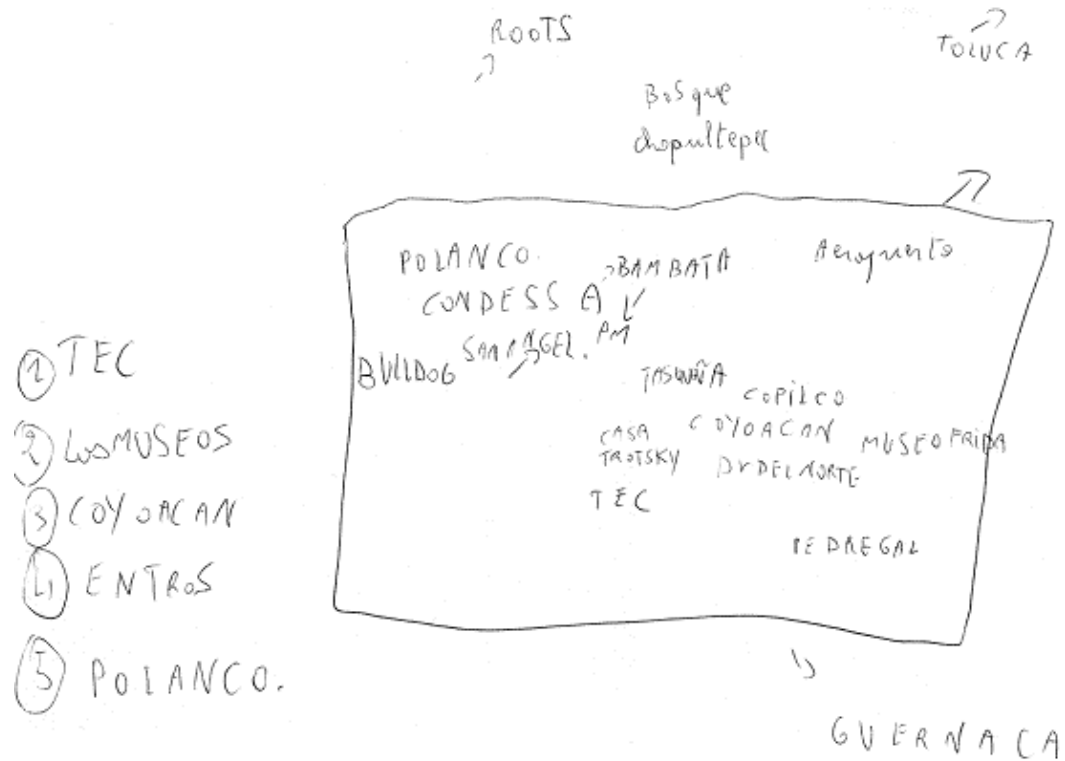 ROOTS
TOLUCA
Bosque
chapultepec
POLANCO.
BAMBATA
Aeropuerto
CONDESSA
PM
SAN ANGEL.
BULLDOG
TASQUEÑA
COPILCO
CASA
TROTSKY
COYOACAN
MUSEO FRIDA
DV DEL NORTE
TEC
PEDREGAL
GUERNACA
1 TEC
2 LOS MUSEOS
3 COYOACAN
4 ENTROS
5 POLANCO.